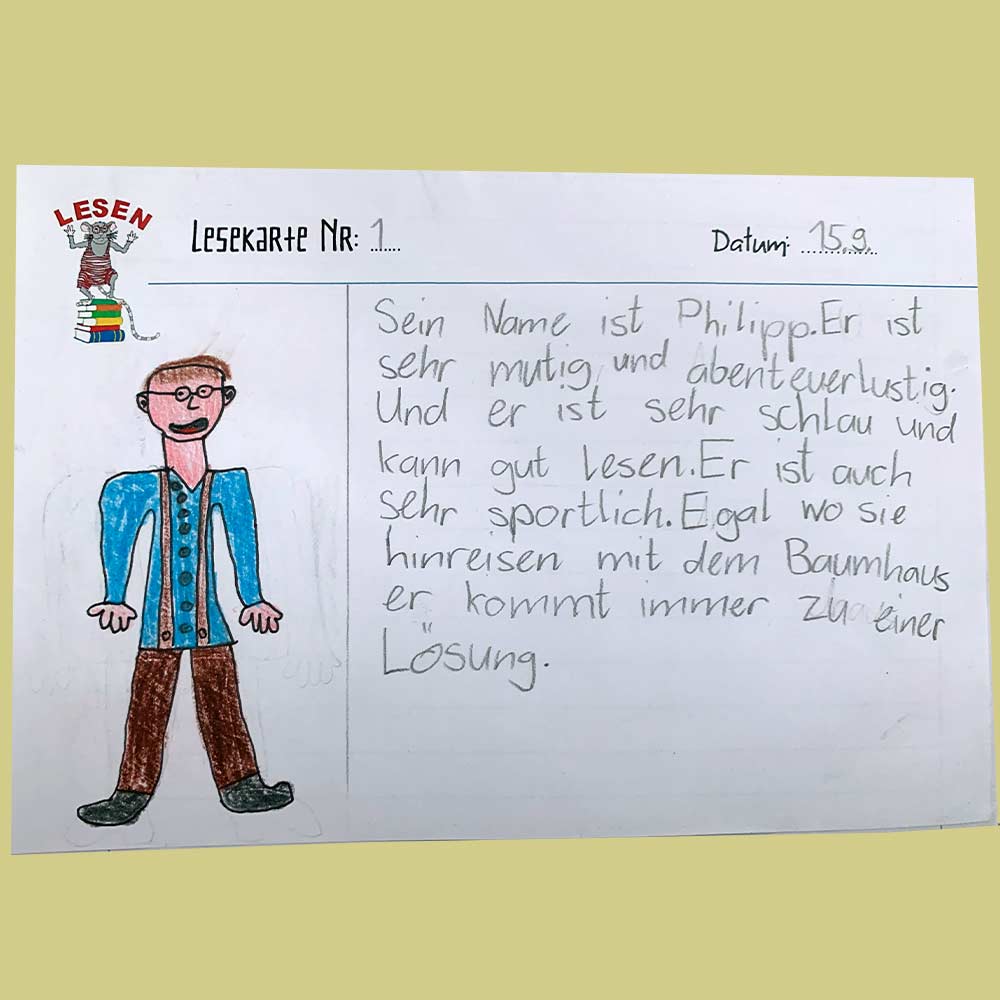 LESEN
Lesekarte Nr: 1
Datum: 15.9.
Sein Name ist Philipp. Er ist
sehr mutig und abenteuerlustig.
Und er ist sehr schlau und
kann gut lesen. Er ist auch
sehr sportlich. Egal wo sie
hinreisen mit dem Baumhaus
er kommt immer zu einer
Lösung.